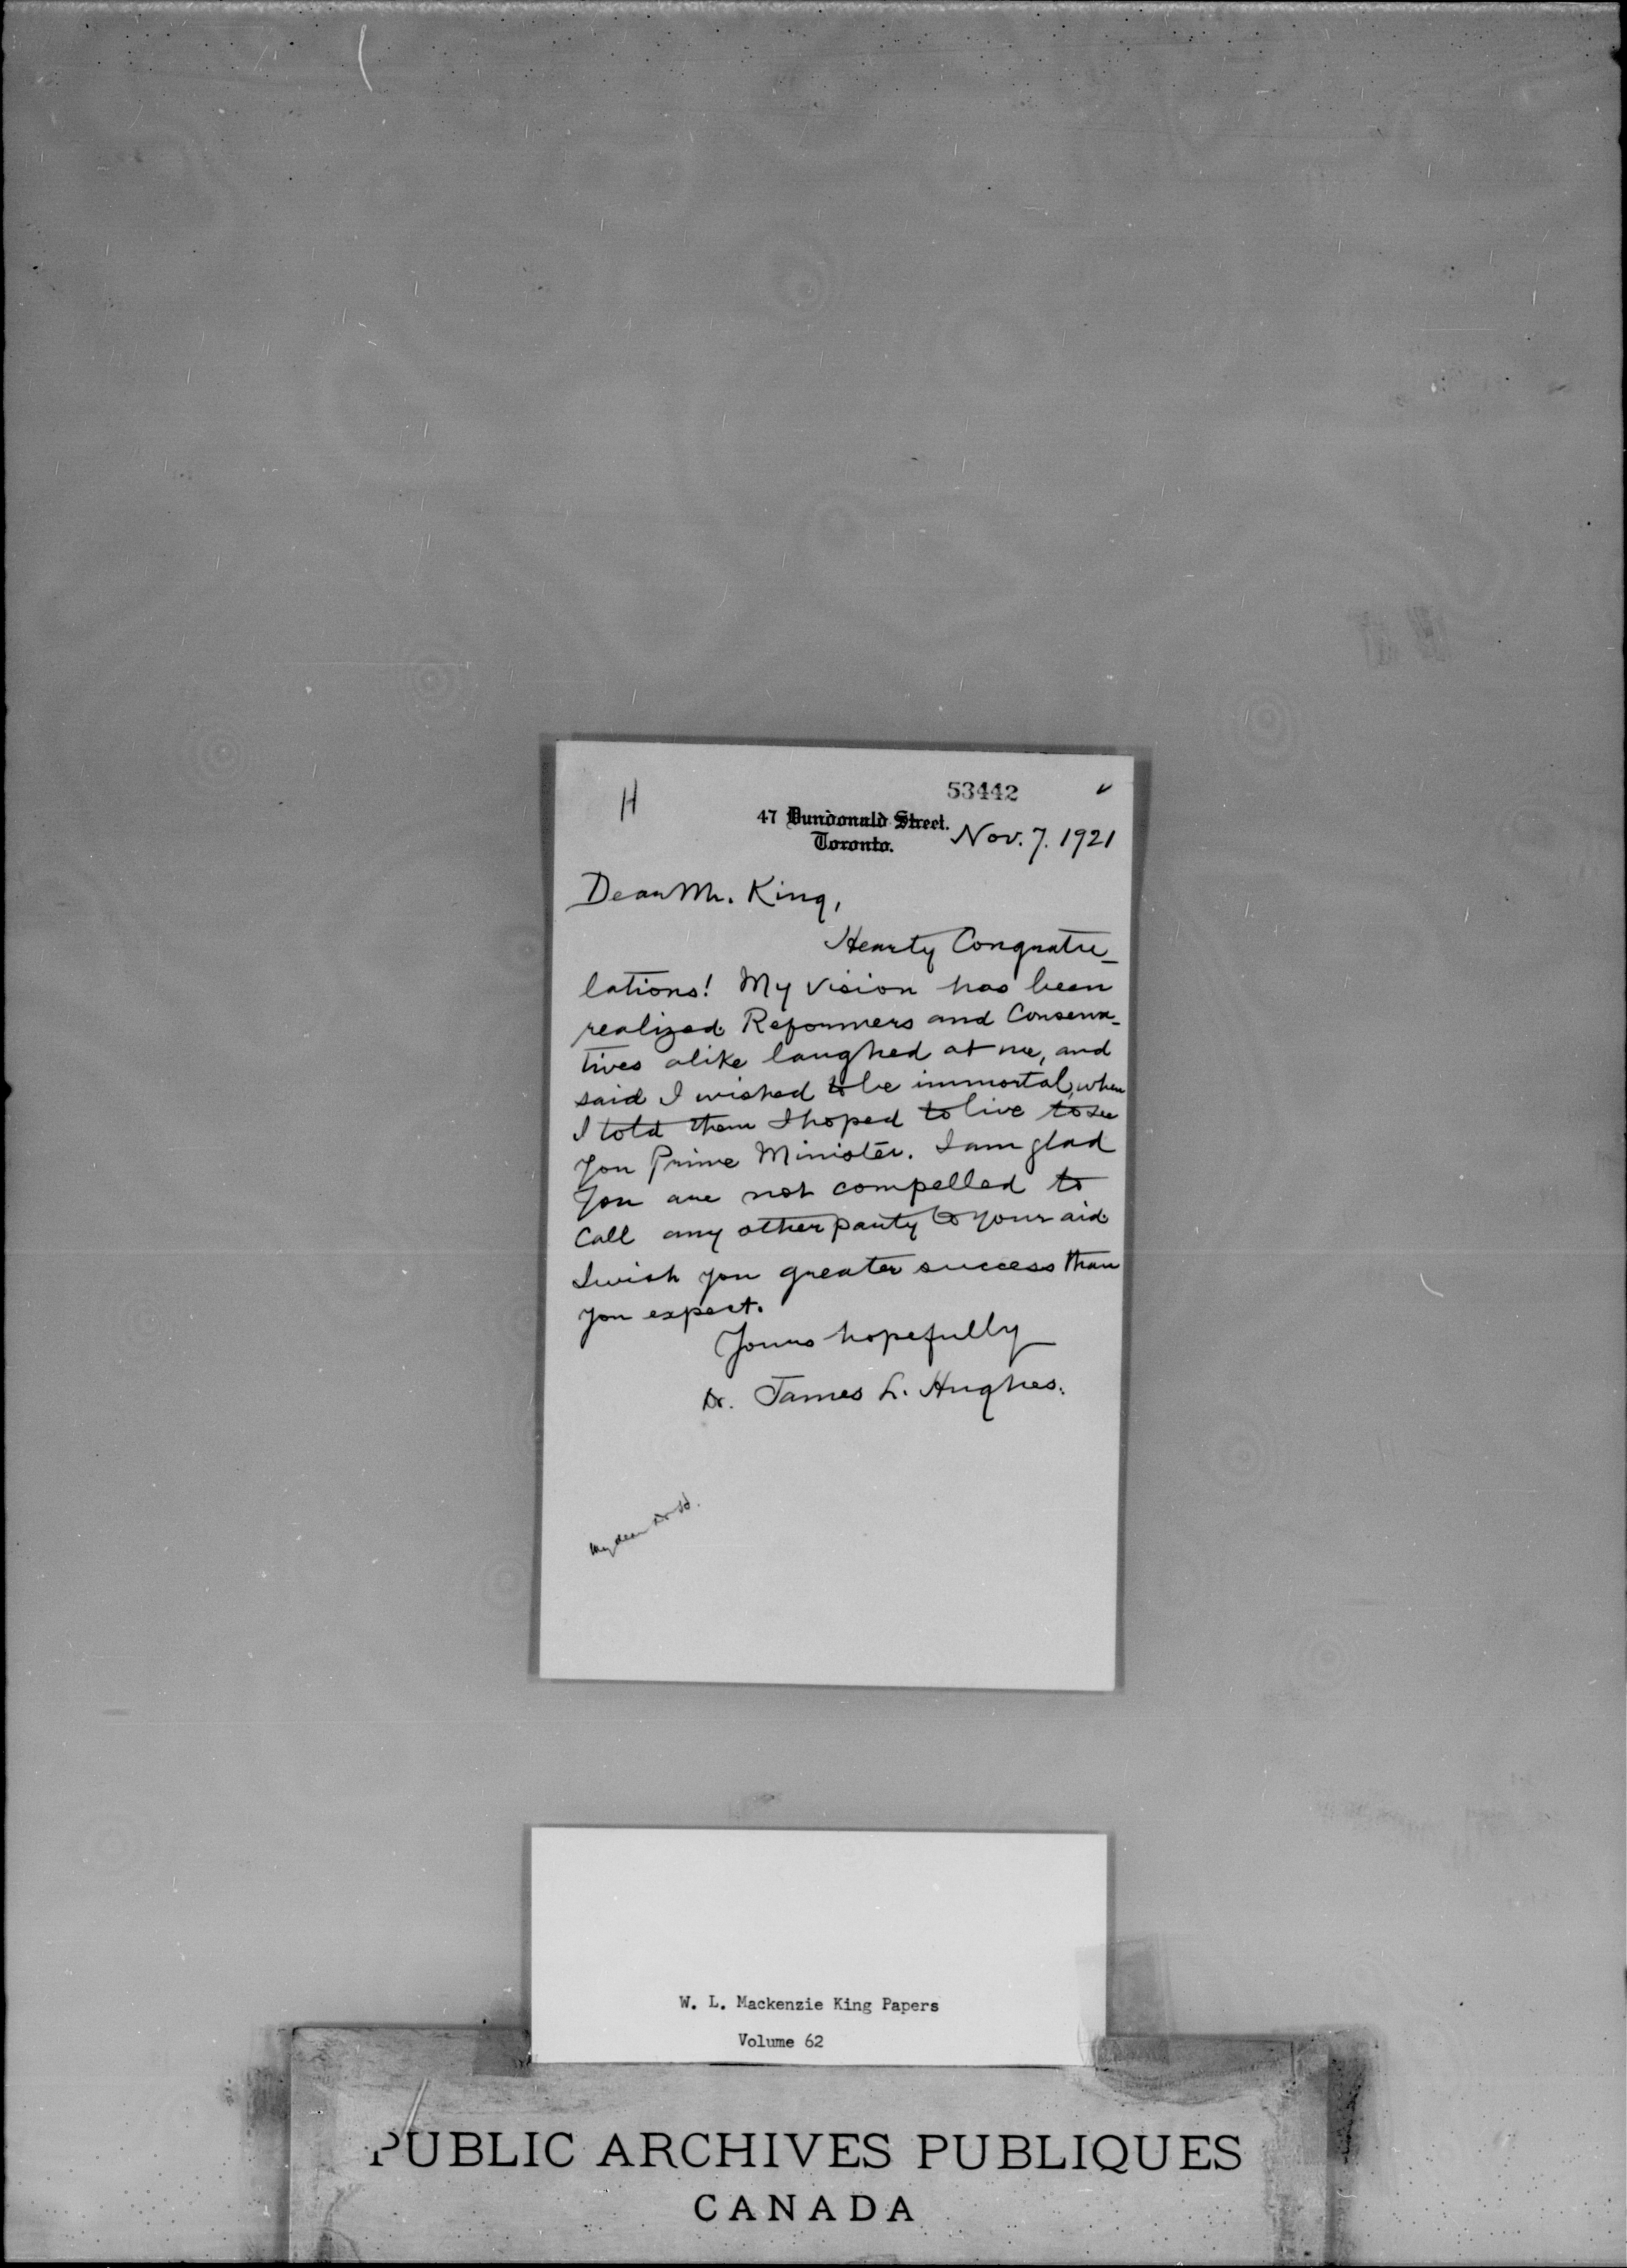 H
53442
47 Dundonald Street.
Toronto.
Nov. 7. 1921
Dear Mr. King,
Hearty Congratu-
lations! My vision has been
realized. Reformers and Conserva-
tives alike laughed at me, and
said I wished to be immortal, when
I told them I hoped to live to see
you Prime Minister. I am glad
you are not compelled to
call any other party to your aid.
I wish you greater success than
you expect.
Yours hopefully
Dr. James L. Hughes.
My dear Dr H.
W. L. Mackenzie King Papers
Volume 62
PUBLIC ARCHIVES PUBLIQUES
CANADA